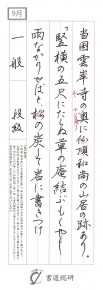 9月
当国雲岸寺の奥に仏頂和尚の山居の跡あり。
「竪横の五尺にたらぬ草の庵結ぶもくやし
雨なかりせばと松の炭して岩に書きつけ
一般　段級
書道総研